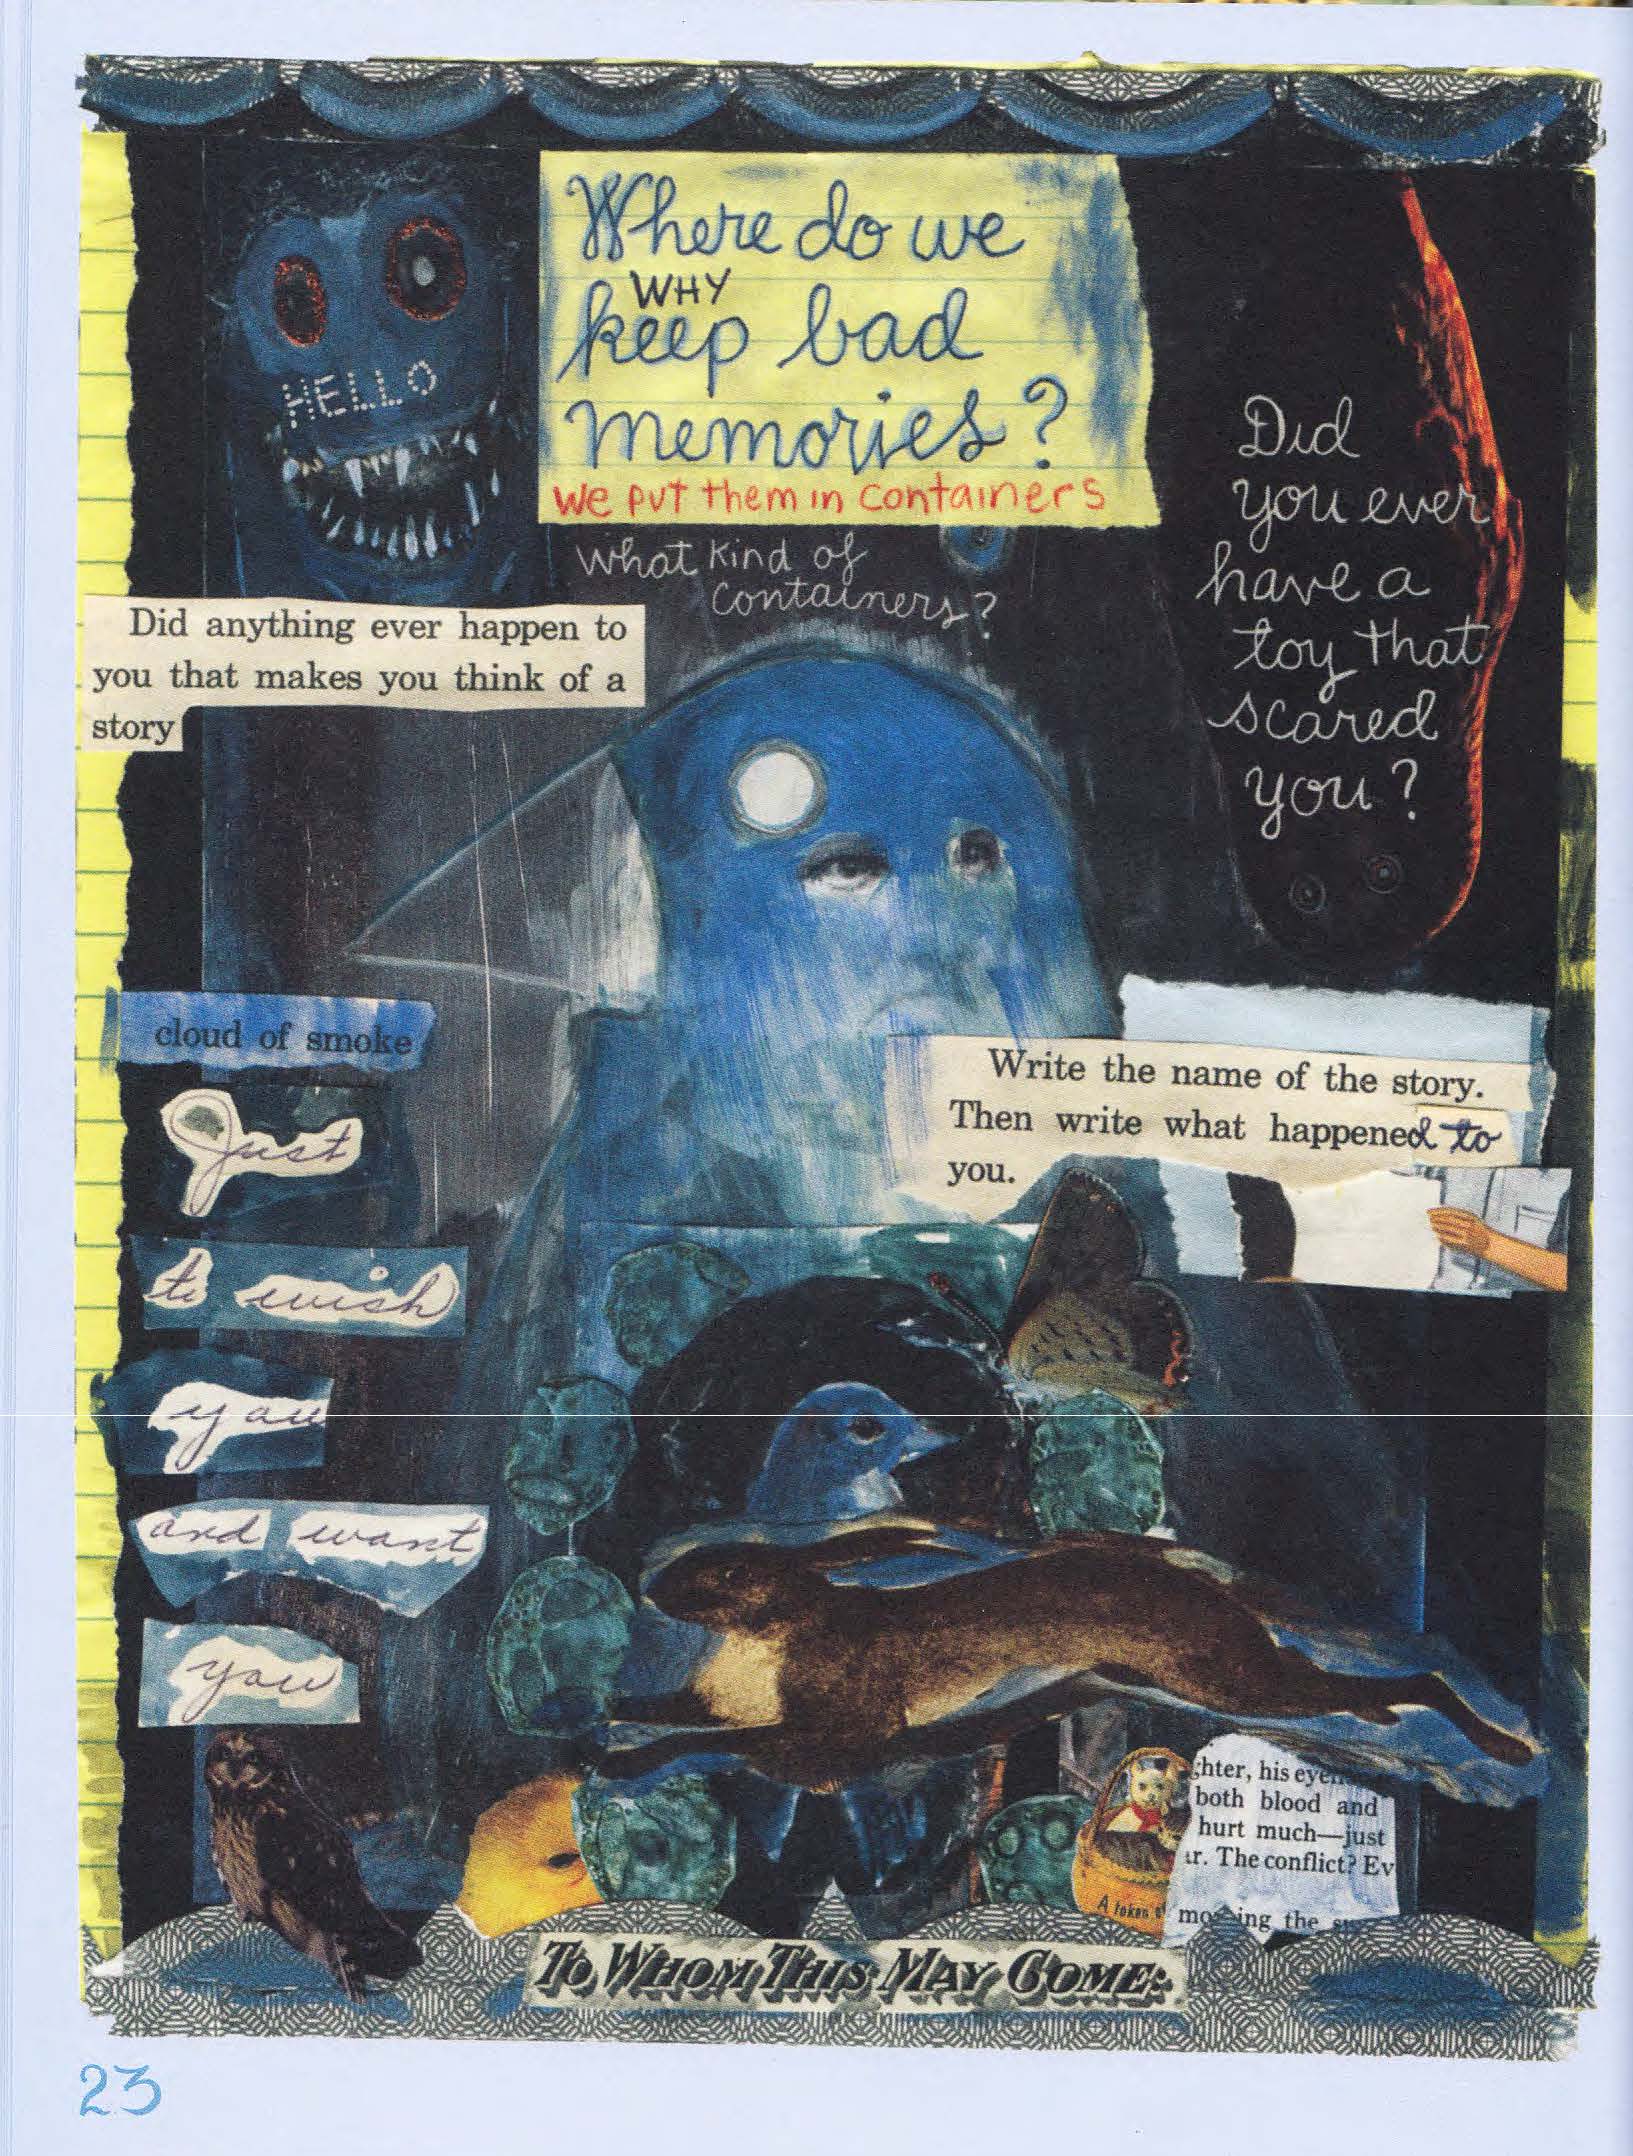 Where do we
WHY
keep bad
memories?
We put them in containers
What kind of
containers?
HELLO
Did
you ever
have a
toy that
scared
you?
Did anything ever happen to
you that makes you think of a
story
cloud of smoke
Just
to wish
you
and want
you
Write the name of the story.
Then write what happened to
you.
ghter, his eye
both blood and
hurt much—just
ar. The conflict? Ev
the
A token
TO WHOM THIS MAY COME:
23